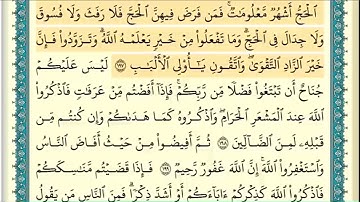 ٱلْحَجُّ أَشْهُرٌ مَّعْلُومَٰتٌ ۚ فَمَن فَرَضَ فِيهِنَّ ٱلْحَجَّ فَلَا رَفَثَ وَلَا فُسُوقَ
وَلَا جِدَالَ فِى ٱلْحَجِّ ۗ وَمَا تَفْعَلُوا۟ مِنْ خَيْرٍ يَعْلَمْهُ ٱللَّهُ ۗ وَتَزَوَّدُوا۟ فَإِنَّ
خَيْرَ ٱلزَّادِ ٱلتَّقْوَىٰ ۚ وَٱتَّقُونِ يَٰٓأُو۟لِى ٱلْأَلْبَٰبِ ١٩٧ لَيْسَ عَلَيْكُمْ
جُنَاحٌ أَن تَبْتَغُوا۟ فَضْلًا مِّن رَّبِّكُمْ ۚ فَإِذَآ أَفَضْتُم مِّنْ عَرَفَٰتٍ فَٱذْكُرُوا۟
ٱللَّهَ عِندَ ٱلْمَشْعَرِ ٱلْحَرَامِ ۖ وَٱذْكُرُوهُ كَمَا هَدَىٰكُمْ وَإِن كُنتُم مِّن
قَبْلِهِۦ لَمِنَ ٱلضَّآلِّينَ ١٩٨ ثُمَّ أَفِيضُوا۟ مِنْ حَيْثُ أَفَاضَ ٱلنَّاسُ
وَٱسْتَغْفِرُوا۟ ٱللَّهَ ۚ إِنَّ ٱللَّهَ غَفُورٌ رَّحِيمٌ ١٩٩ فَإِذَا قَضَيْتُم مَّنَٰسِكَكُمْ
فَٱذْكُرُوا۟ ٱللَّهَ كَذِكْرِكُمْ ءَابَآءَكُمْ أَوْ أَشَدَّ ذِكْرًا ۗ فَمِنَ ٱلنَّاسِ مَن يَقُولُ